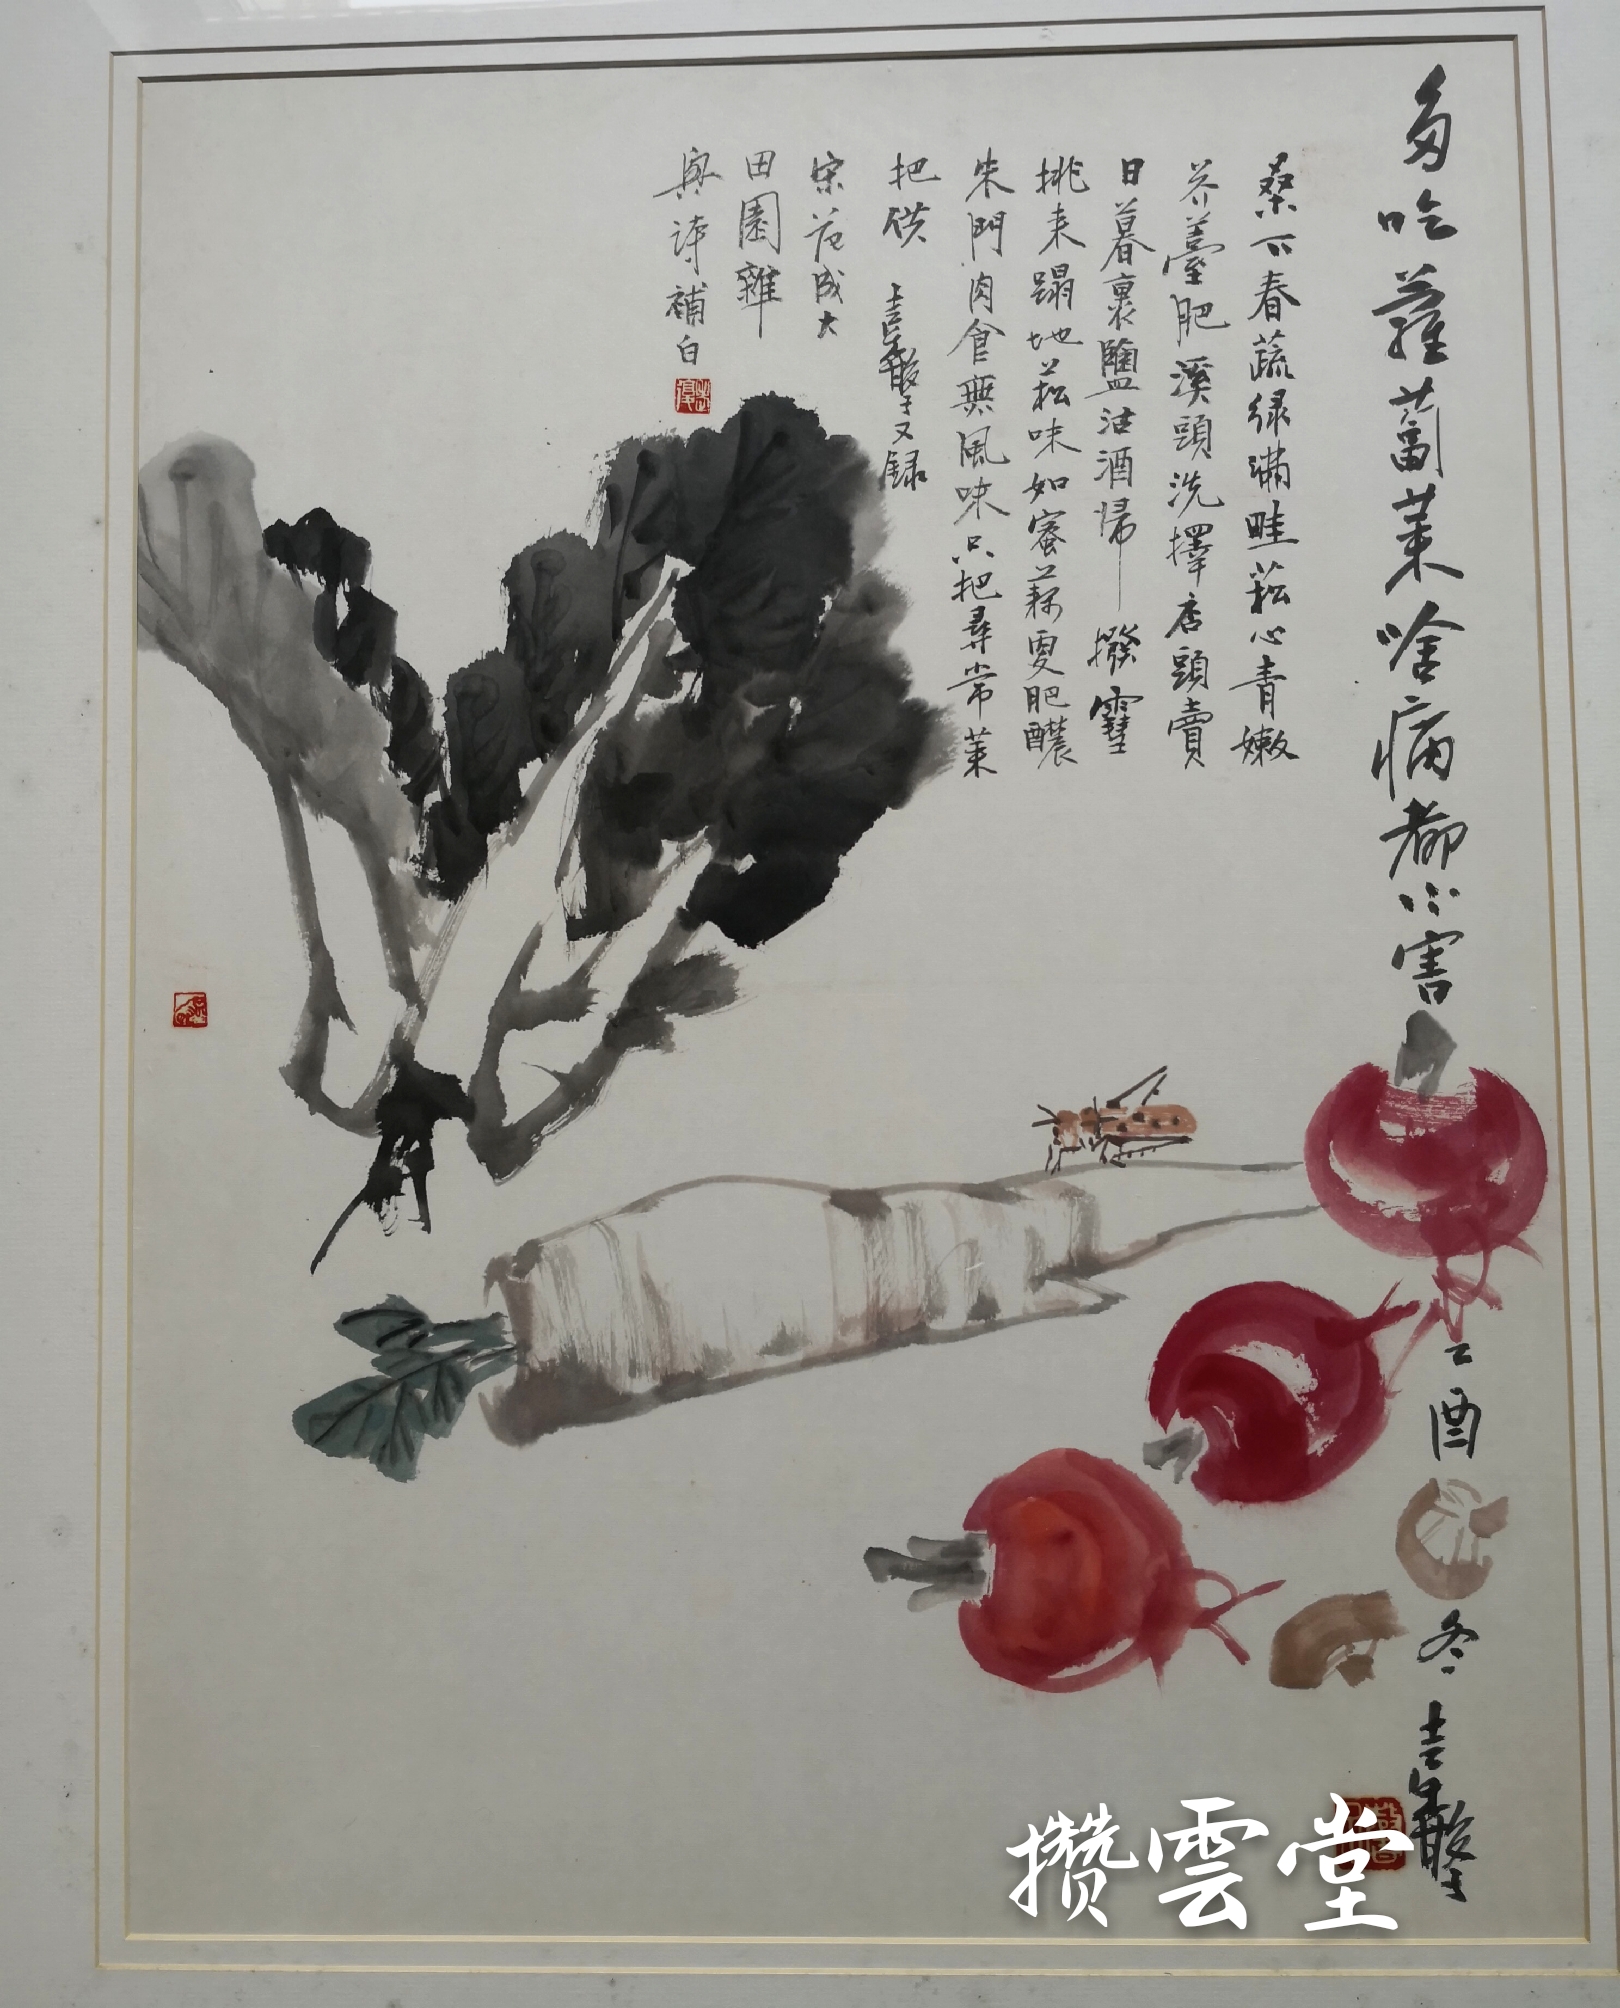 多吃蘿蔔菜啥病都不害
乙酉冬
桑下春蔬綠滿畦菘心青嫩
芥薹肥溪頭洗擇店頭賣
日暮裹鹽沽酒歸撥雪
挑来蹋地菘味如蜜藕更肥醲
朱門肉食無風味只把尋常菜
把供
又録
宋范成大
田園雜
興詩補白
攒雲堂